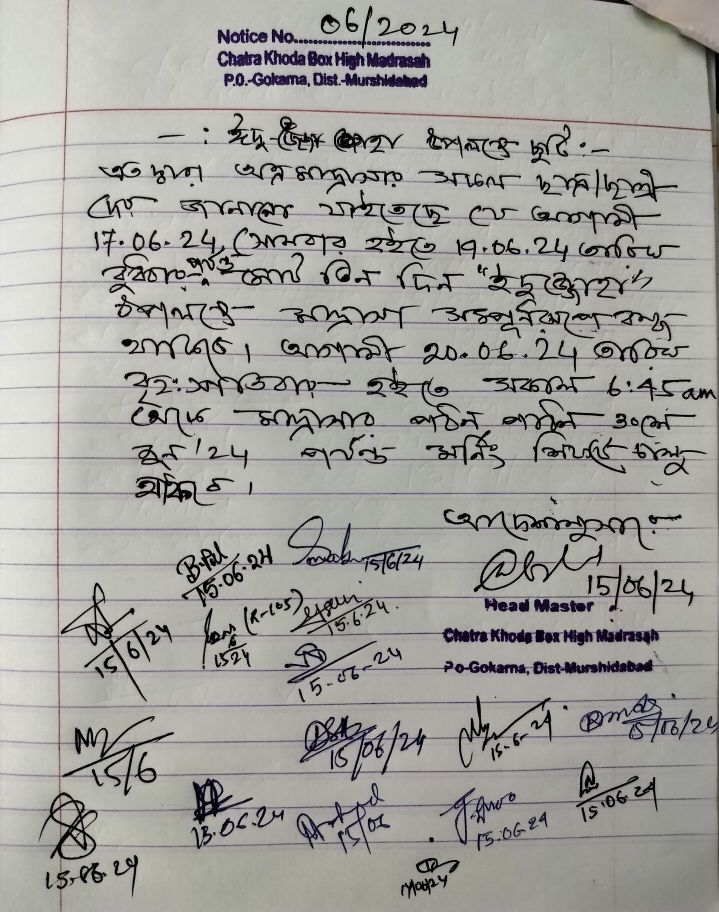 Notice No. 06/2024
Chatra Khoda Box High Madrasah
P.O.-Gokarna, Dist.-Murshidabad
—: ঈদ উপলক্ষে ছুটি:—
এতদ্বারা অত্র মাদ্রাসার সকল ছাত্র/ছাত্রী
দের জানানো যাইতেছে যে আগামী
17.06.24, সোমবার হইতে 19.06.24 তারিখ
বুধবার পর্যন্ত মোট তিন দিন "ইদুজ্জোহা"
উপলক্ষে মাদ্রাসা সম্পূর্নরূপে বন্ধ
থাকিবে। আগামী 20.06.24 তারিখ
বৃহঃস্পতিবার হইতে সকাল 6:45 am
থেকে মাদ্রাসার পঠন পাঠন ৩০শে
জুন '24 পর্যন্ত মর্নিং শিফটে চালু
থাকবে।
আদেশানুসারে
15/06/24
Head Master
Chatra Khoda Box High Madrasah
P.o-Gokarna, Dist-Murshidabad
15.06.24
15/6/24
15/6/24
(K-105)
15.6.24
15.06.24
15/6
15/06/24
15.6.24
15/06/24
15.06.24
15.06.24
15/06
15.06.24
15.06.24